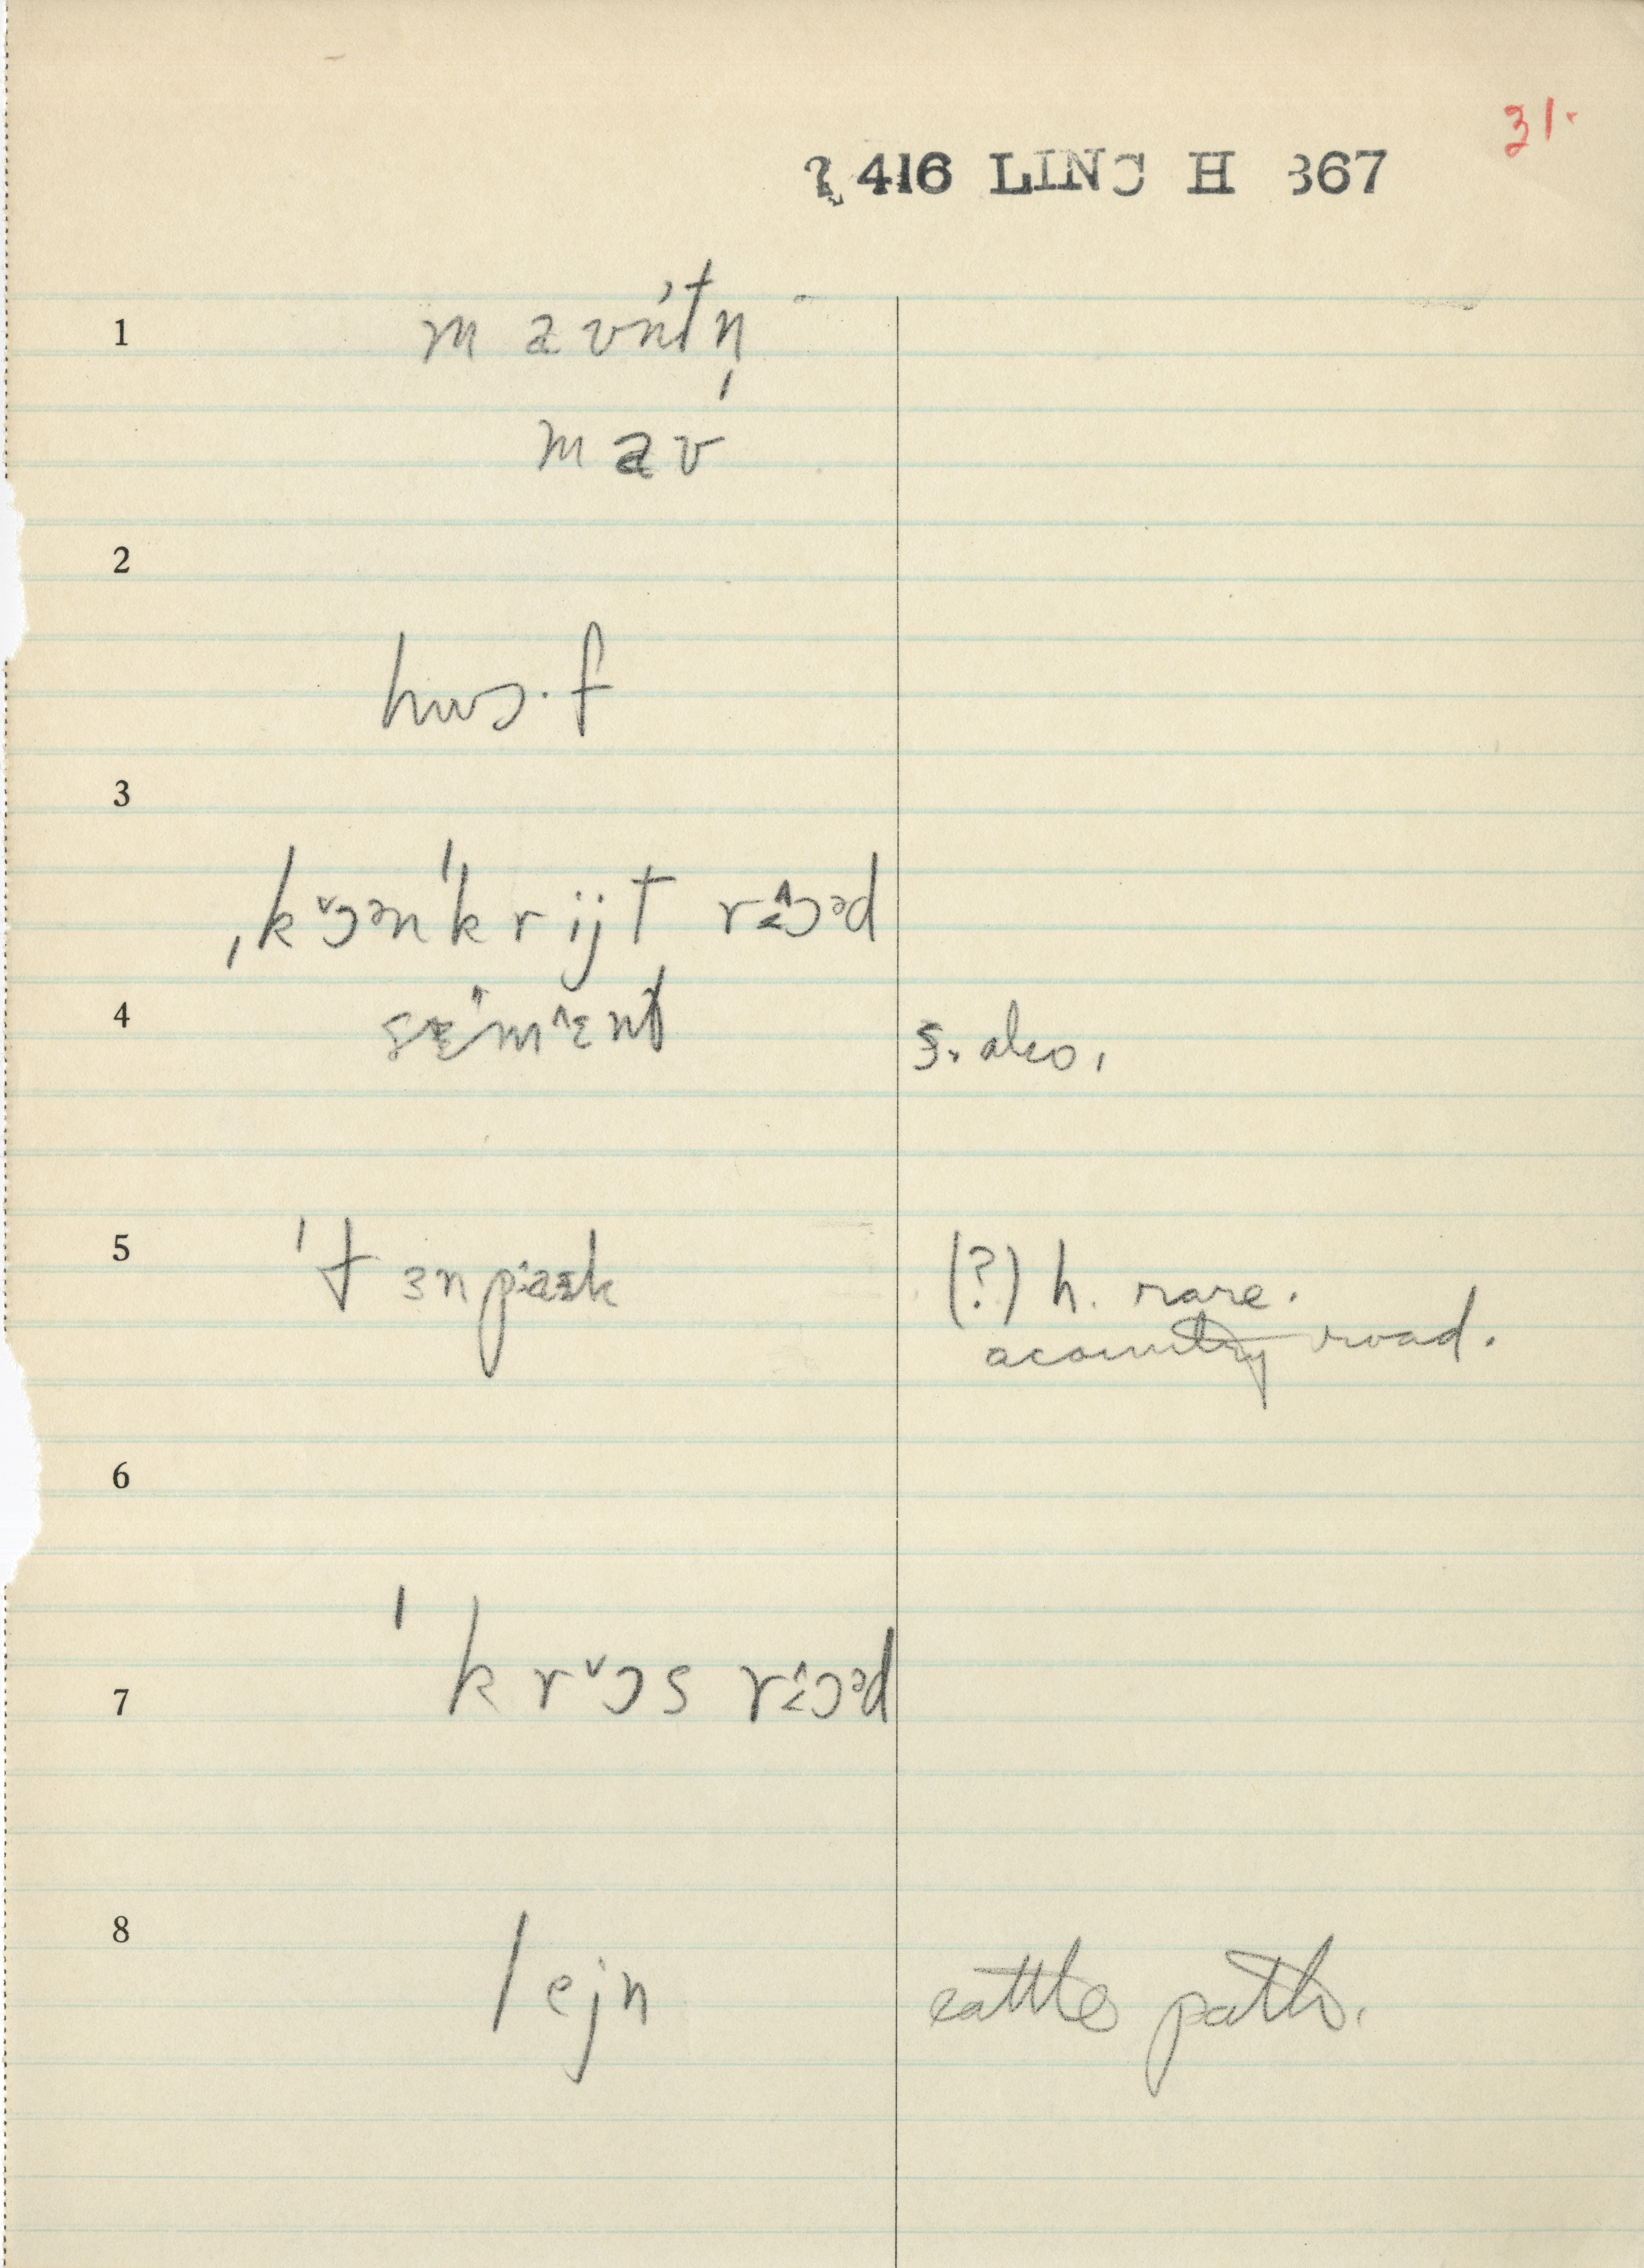 31.
416 LINC H 367
1 m a vn't n̩
m a v
2
hʊs·f
3
ˌk ɔ˅ən ˈk r ij t rɔ˄əd
4
s. also.
5 ˈt ɜn pa·ɛk (?) h. rare.
a country road.
6
7 ˈk r ɔ˅ s rɔ˄əd
8 l ejn cattle path.